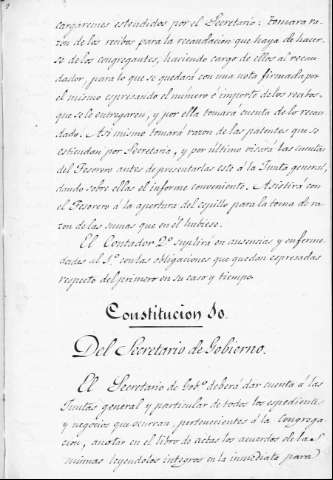 cargaremes estendidos por el Secretario: tomara ra-
zon de los recibos para la recaudacion que haya de hacer-
se de los congregantes, haciendo cargo de ellos al recau-
dador, para lo que se quedará con una nota firmada por
el mismo espresando el número é importe de los recibos,
que se le entregaren, y por ella tomará cuenta de lo recau-
dado. Asi mismo tomará razon de las patentes que se
estiendan por Secretaria, y por ultimo visará las cuentas
del Tesorero antes de presentarlas este á la Junta general,
dando sobre ellas el informe conveniente. Asistirá con
el Tesorero á la apertura del cepillo para la toma de ra-
zon de las sumas que en él hubiese.
El Contador 2º suplirá en ausencias y enferme-
dades al 1º con las obligaciones que quedan espresadas
respecto del primero en su caso y tiempo.
Constitucion
Del Secretario de Gobierno.
El Secretario de Gobº deberá dar cuenta á las
Juntas general y particular de todos los espedientes
y negocios que ocurran, pertenecientes á la Congrega-
cion, anotar en el libro de actas los acuerdos de las
mismas leyendolos integros en la inmediata para